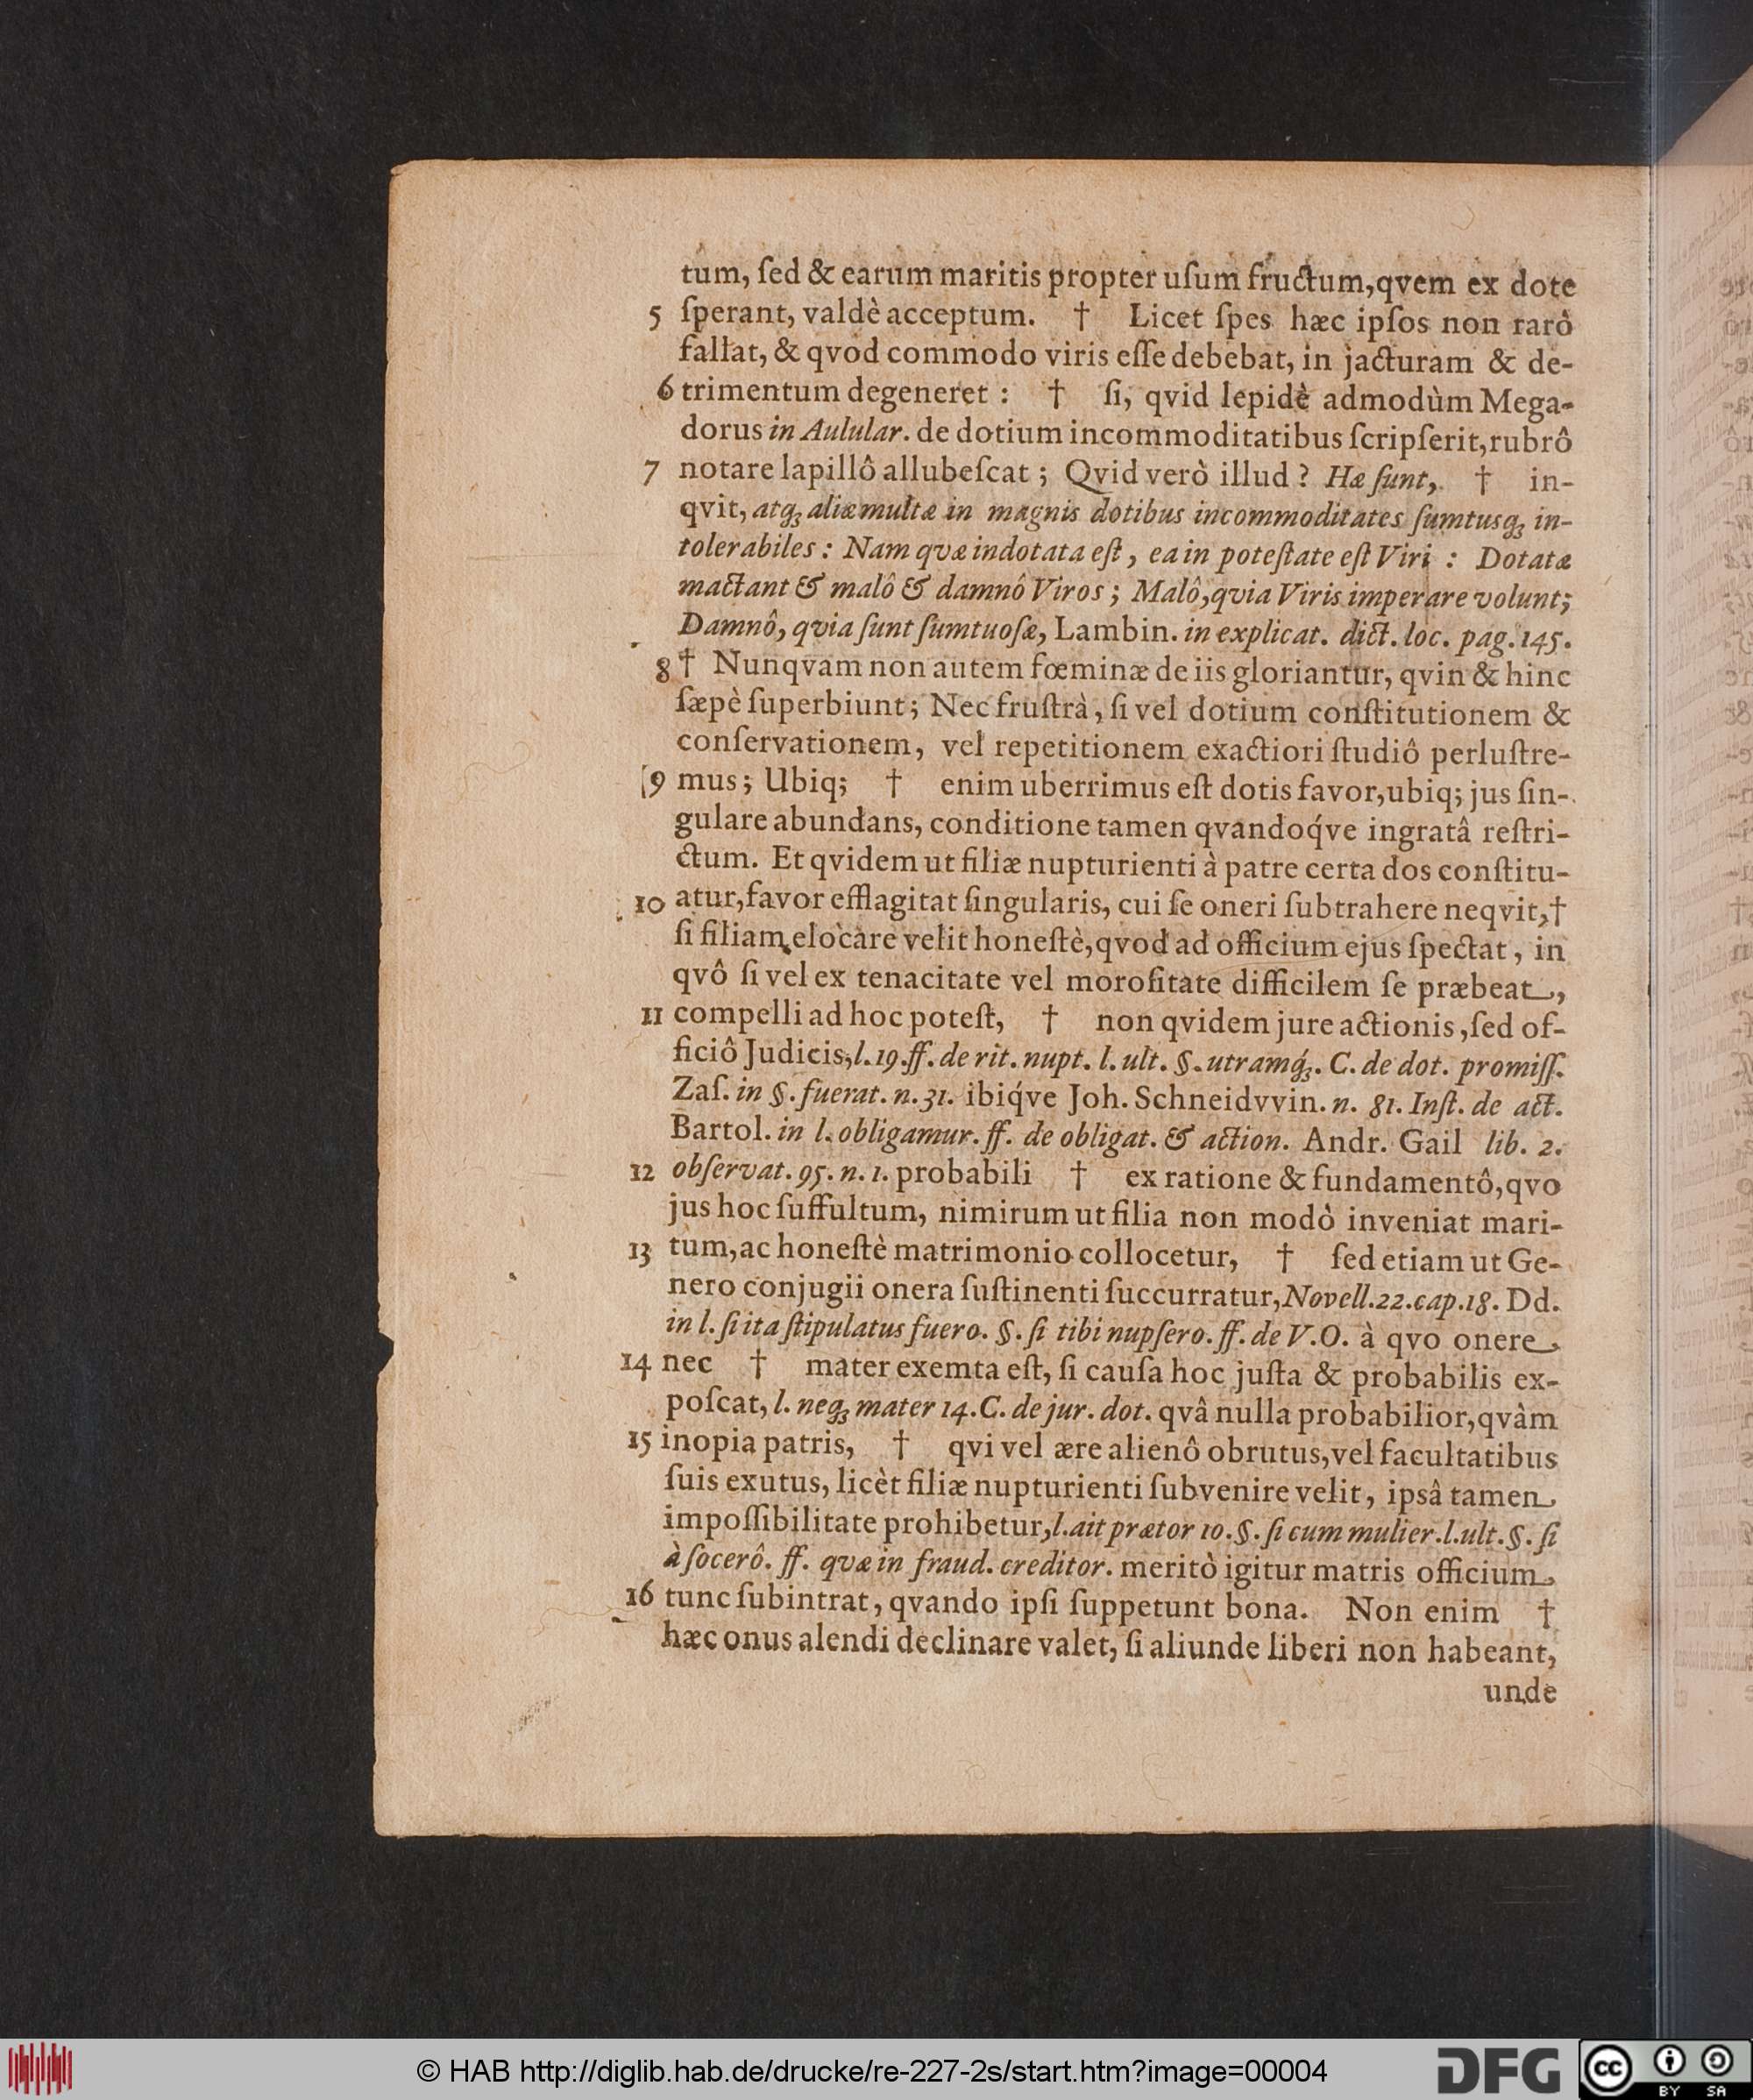 tum, ſed & earum maritis propter uſum fructum,qvem ex dote
5 ſperant, valdè acceptum. † Licet ſpes hæc ipſos non rarò
fallat, & qvod commodo viris eſſe debebat, in jacturam & de-
6 trimentum degeneret : † ſi, qvid lepidè admodùm Mega-
dorus in Aulular. de dotium incommoditatibus ſcripſerit,rubrô
7 notare lapillô allubeſcat ; Qvid verò illud ? Hæ ſunt, † in-
qvit, atqꝫ aliæ multæ in magnis dotibus incommoditates ſumtusqꝫ in-
tolerabiles : Nam qvæ indotata eſt, ea in poteſtate eſt Viri : Dotatæ
mactant & malô & damnô Viros ; Malô,qvia Viris imperare volunt;
Damnô, qvia ſunt ſumtuoſæ, Lambin. in explicat. dict. loc. pag. 145.
8 † Nunqvam non autem fœminæ de iis gloriantur, qvin & hinc
ſæpè ſuperbiunt; Nec fruſtrà, ſi vel dotium conſtitutionem &
conſervationem, vel repetitionem exactiori ſtudiô perluſtre-
9 mus; Ubiq; † enim uberrimus eſt dotis favor,ubiq; jus ſin-
gulare abundans, conditione tamen qvandoq́ve ingratâ reſtri-
ctum. Et qvidem ut filiæ nupturienti à patre certa dos conſtitu-
10 atur,favor efflagitat ſingularis, cui ſe oneri ſubtrahere neqvit,†
ſi filiam elocare velit honeſtè,qvod ad officium ejus ſpectat, in
qvô ſi vel ex tenacitate vel moroſitate difficilem ſe præbeat,
11 compelli ad hoc poteſt, † non qvidem jure actionis,ſed of-
ficiô Judicis,l. 19. ff. de rit. nupt. l. ult. §. utramq́ꝫ. C. de dot. promiſſ.
Zaſ. in §. fuerat. n. 31. ibiq́ve Joh. Schneidvvin. n. 81. Inſt. de act.
Bartol. in l. obligamur. ff. de obligat. & action. Andr. Gail lib. 2.
12 obſervat. 95. n. 1. probabili † ex ratione & fundamentô,qvo
jus hoc ſuffultum, nimirum ut filia non modò inveniat mari-
13 tum,ac honeſtè matrimonio collocetur, † ſed etiam ut Ge-
nero conjugii onera ſuſtinenti ſuccurratur,Novell. 22. cap. 18. Dd.
in l. ſi ita ſtipulatus fuero. §. ſi tibi nupſero. ff. de V. O. à qvo onere
14 nec † mater exemta eſt, ſi cauſa hoc juſta & probabilis ex-
poſcat, l. neqꝫ mater 14. C. de jur. dot. qvâ nulla probabilior,qvàm
15 inopia patris, † qvi vel ære alienô obrutus,vel facultatibus
ſuis exutus, licèt filiæ nupturienti ſubvenire velit, ipsâ tamen
impoſſibilitate prohibetur,l. ait prætor 10. §. ſi cum mulier. l. ult. §. ſi
à ſocerô. ff. qvæ in fraud. creditor. meritò igitur matris officium
16 tunc ſubintrat, qvando ipſi ſuppetunt bona. Non enim †
hæc onus alendi declinare valet, ſi aliunde liberi non habeant,
unde
© HAB http://diglib.hab.de/drucke/re-227-2s/start.htm?image=00004
DFG
cc BY SA